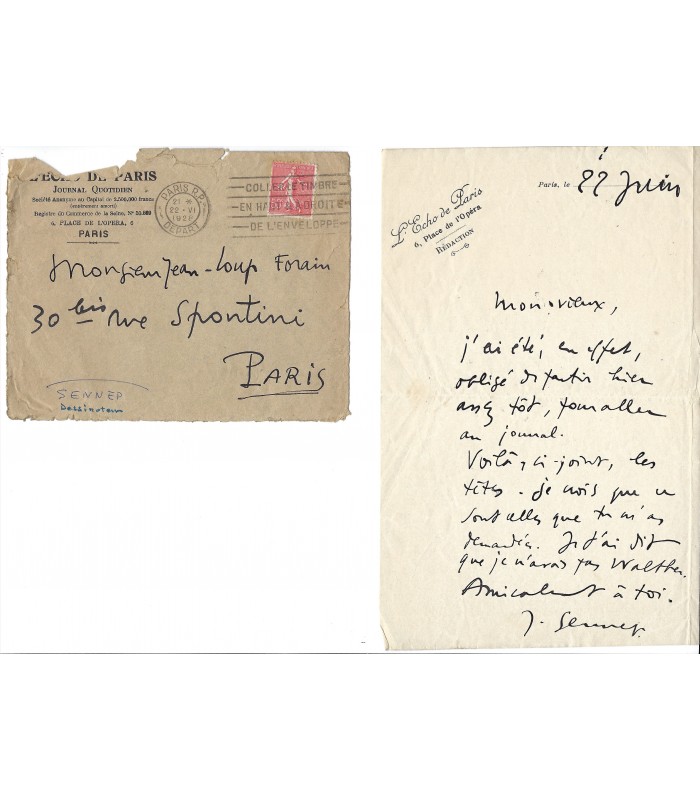 L'ECHO DE PARIS
JOURNAL QUOTIDIEN
Société Anonyme au Capital de 2.500.000 francs
(entièrement amorti)
Registre du Commerce de la Seine, N°
6, PLACE DE L'OPÉRA, 6
PARIS
PARIS R.P.
21 *
22 - VI
DEPART
COLLER LE TIMBRE
EN HAUT & A DROITE
DE L'ENVELOPPE
Monsieur Jean-Loup Forain
30 bis rue Spontini
PARIS
SENNEP
Dessinateur
L'Echo de Paris
6, Place de l'Opéra
RÉDACTION
Paris, le 22 Juin
Mon vieux,
j'ai été, en effet,
obligé de partir hier
assez tôt, pour aller
au journal.
Voilà, ci-joint, les
têtes. Je crois que ce
sont elles que tu m'as
demandées. Je t'ai dit
que je n'avais pas Walther.
Amicalement à toi.
J. Sennep.